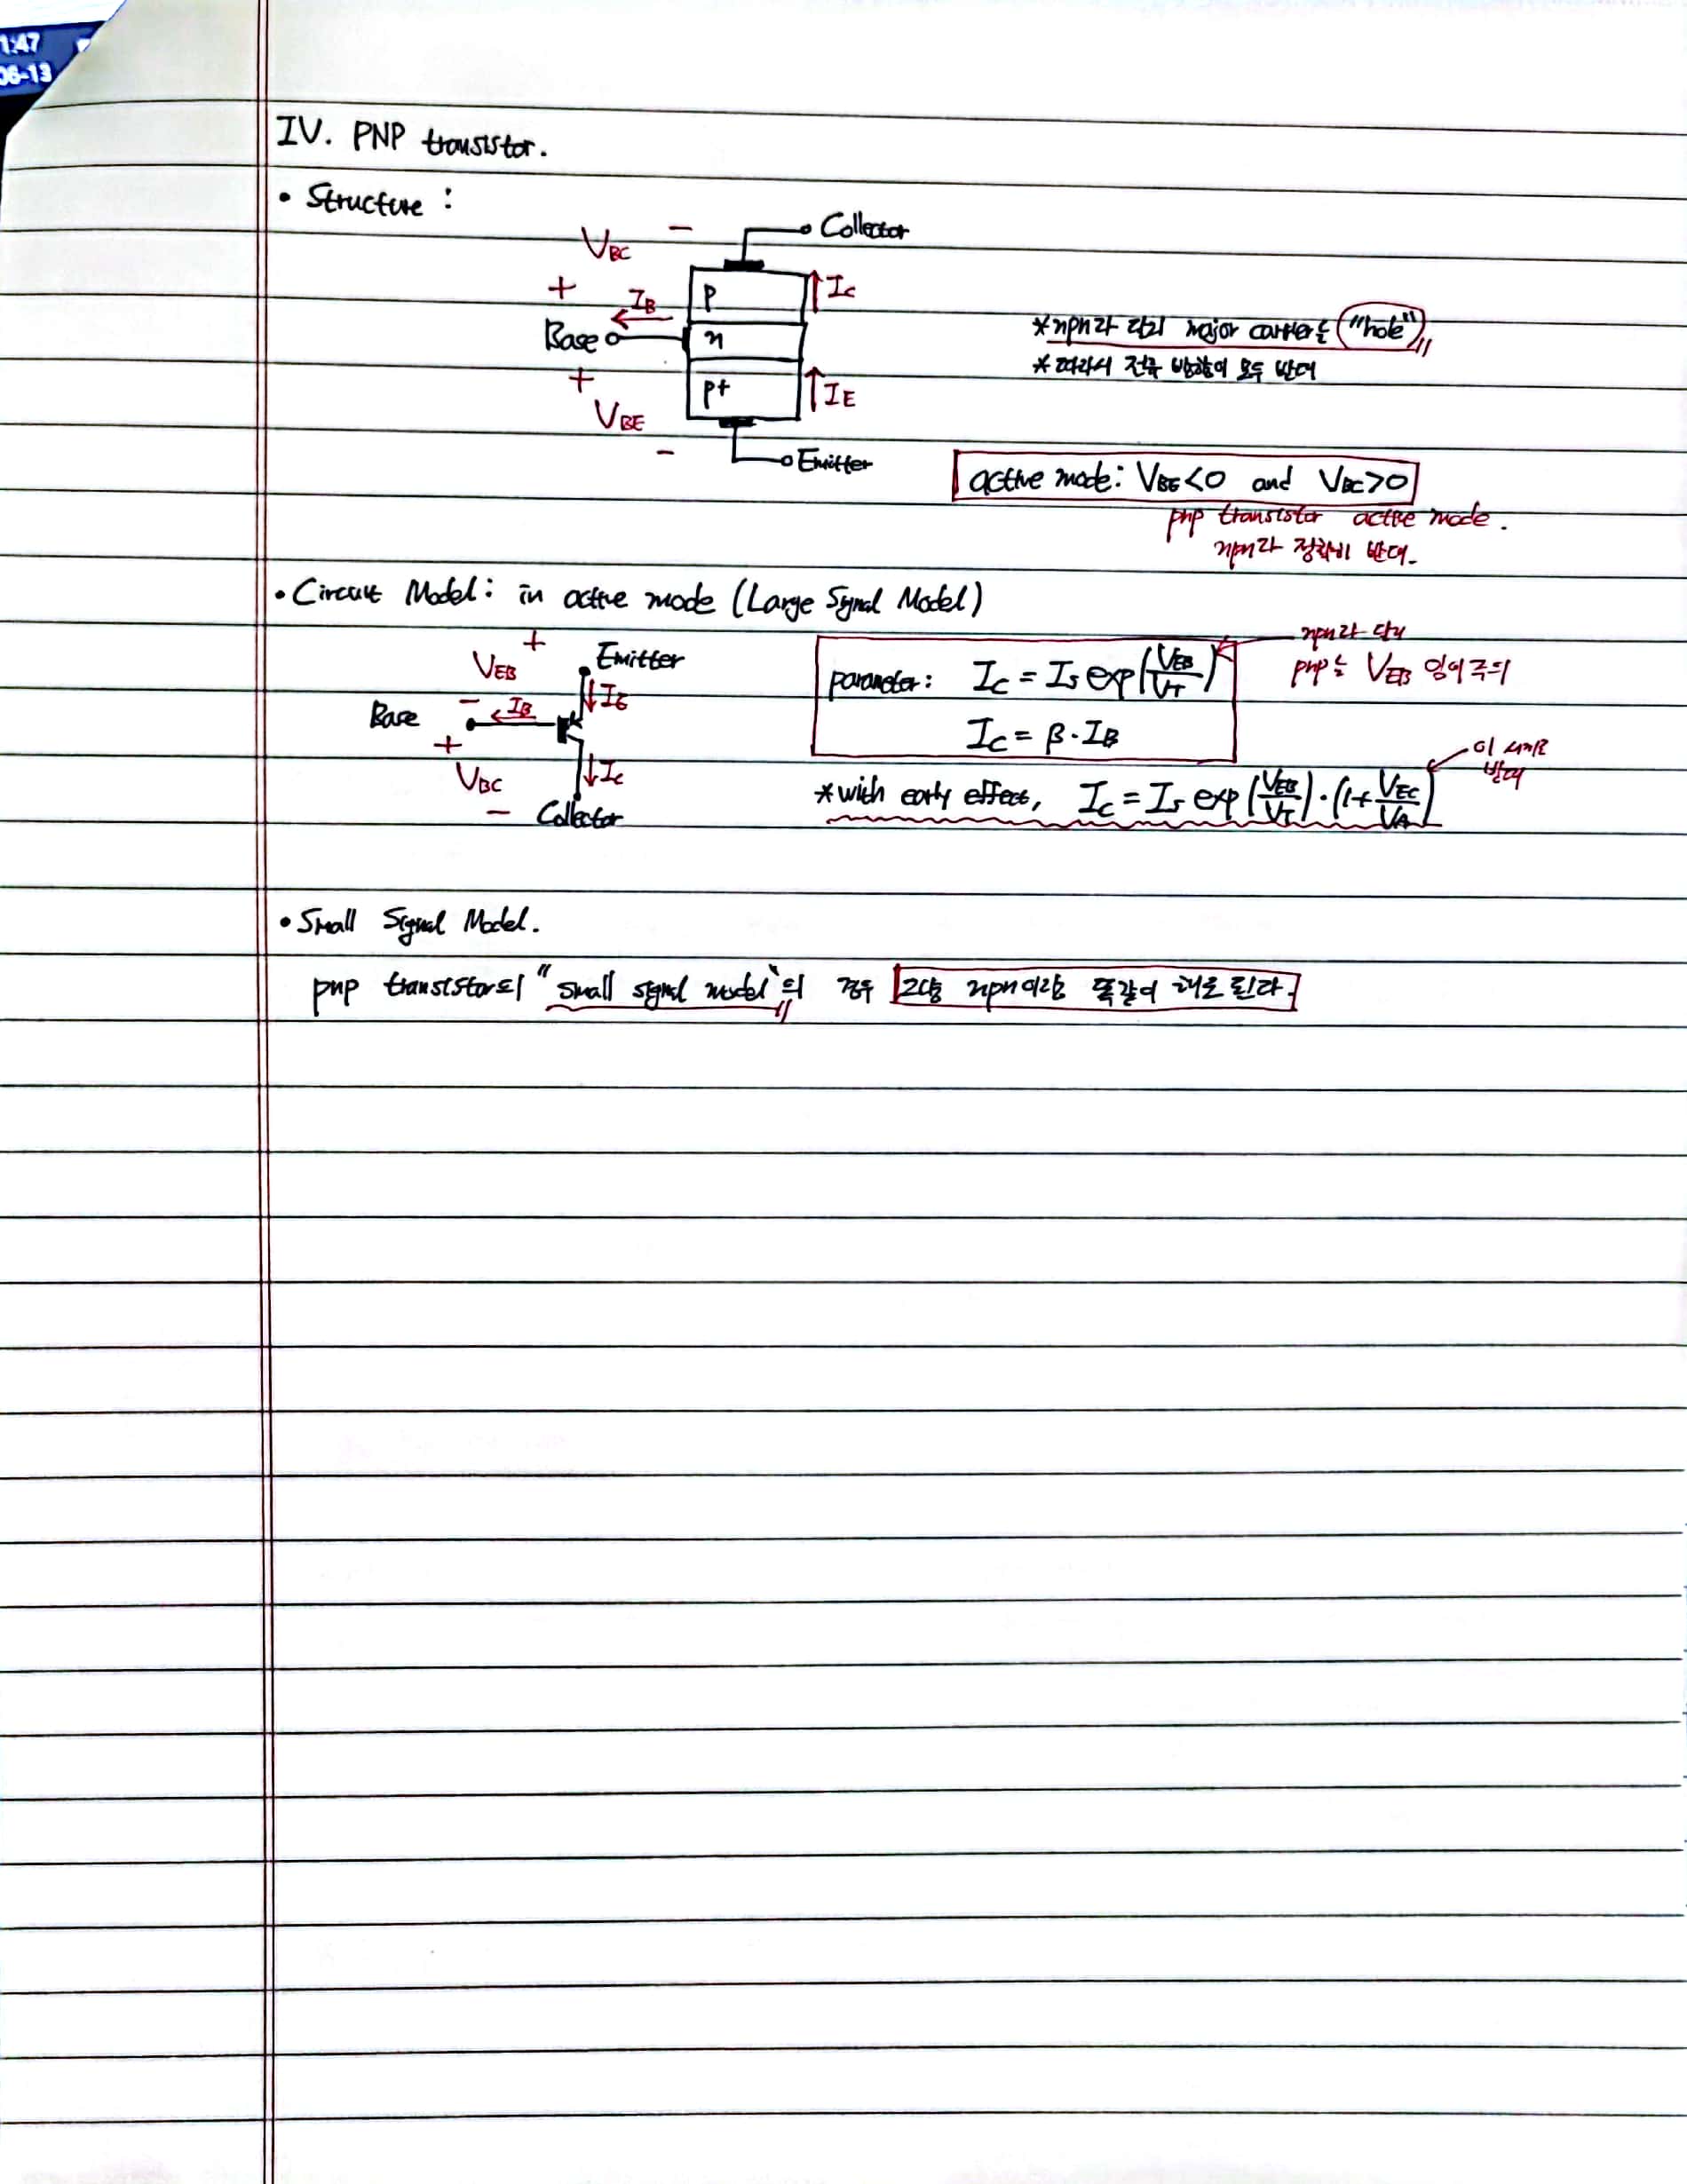 1:47
06-13
IV. PNP transistor.
• Structure :
VBC − Collector
+ IB p IC
Base n
+ p+ IE
VBE
− Emitter
*npn과 달리 major carrier는 "hole"
*따라서 전류 방향이 모두 반대
active mode: VBE<0 and VBC>0
pnp transistor active mode.
npn과 정확히 반대.
• Circuit Model: in active mode (Large Signal Model)
VEB + Emitter
− IB IE
Base
+
VBC IC
− Collector
parameter: IC = IS exp(VEB/VT)
IC = β·IB
npn과 달리
pnp는 VEB 임에 주의
*with early effect, IC = IS exp(VEB/VT)·(1+VEC/VA)
반대
• Small Signal Model.
pnp transistor의 "small signal model"의 경우 그냥 npn이랑 똑같이 해도 된다.